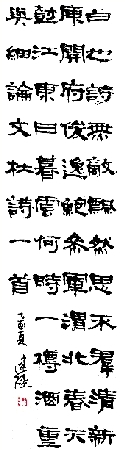 白也詩無敵飄然思不羣清新
庾開府俊逸鮑參軍渭北春天
樹江東日暮雲何時一樽酒重
與細論文杜詩一首